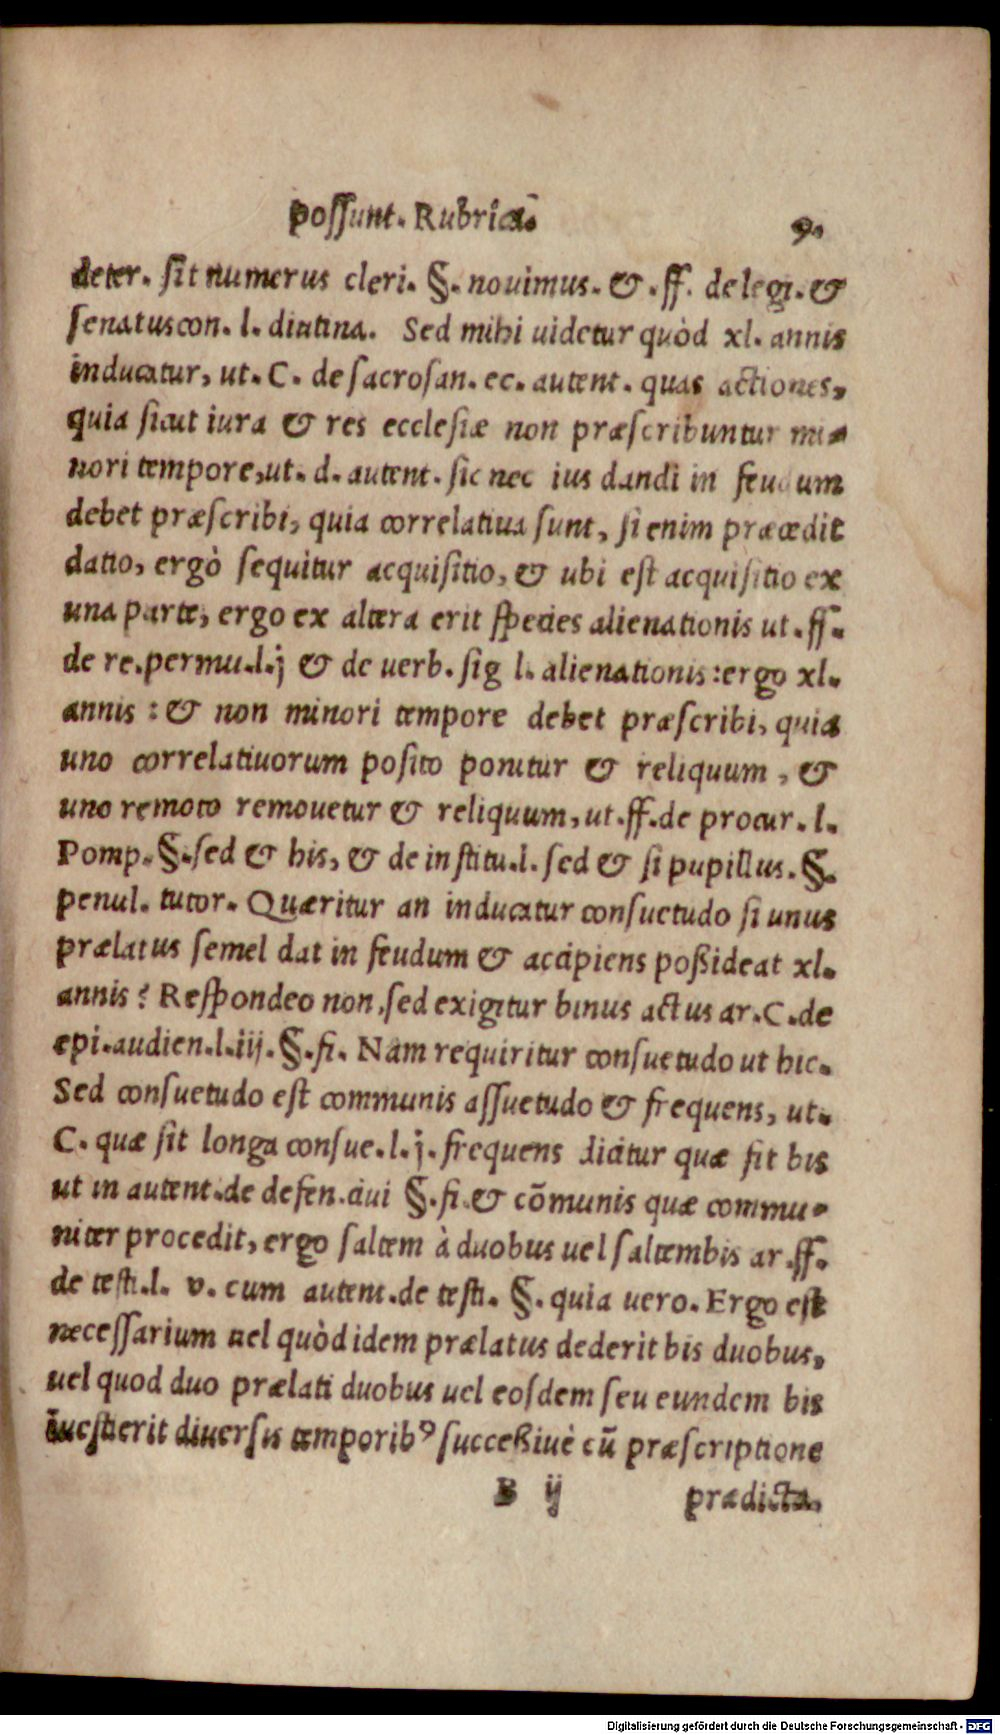 possunt. Rubrica. 9.
deter. sit numerus cleri. §. nouimus. & .ff. de legi. &
senatuscon. l. diutina. Sed mihi uidetur quòd xl. annis
inducatur, ut. C. de sacrosan. ec. autent. quas actiones,
quia sicut iura & res ecclesiæ non præscribuntur mi-
nori tempore, ut. d. autent. sic nec ius dandi in feudum
debet præscribi, quia correlatiua sunt, si enim præcedit
datio, ergò sequitur acquisitio, & ubi est acquisitio ex
una parte, ergo ex altera erit species alienationis ut. ff.
de re. permu. l. j & de uerb. sig l. alienationis: ergo xl.
annis: & non minori tempore debet præscribi, quia
uno correlatiuorum posito ponitur & reliquum, &
uno remoto remouetur & reliquum, ut. ff. de procur. l.
Pomp. §. sed & his, & de institu. l. sed & si pupillus. §.
penul. tutor. Quæritur an inducatur consuetudo si unus
prælatus semel dat in feudum & accipiens poßideat xl.
annis? Respondeo non, sed exigitur binus actus ar. C. de
epi. audien. l. iij. §. fi. Nam requiritur consuetudo ut hic.
Sed consuetudo est communis assuetudo & frequens, ut.
C. quæ sit longa consue. l. j. frequens dicitur quæ fit bis
ut in autent. de defen. ciui §. fi. & cõmunis quæ commu-
niter procedit, ergo saltem à duobus uel saltembis ar. ff.
de testi. l. v. cum autent. de testi. §. quia uero. Ergo est
necessarium uel quòd idem prælatus dederit bis duobus,
uel quod duo prælati duobus uel eosdem seu eundem bis
īuestierit diuersis temporibꝰ succeßiuè cū præscriptione
B ij prædicta,
Digitalisierung gefördert durch die Deutsche Forschungsgemeinschaft - DFG